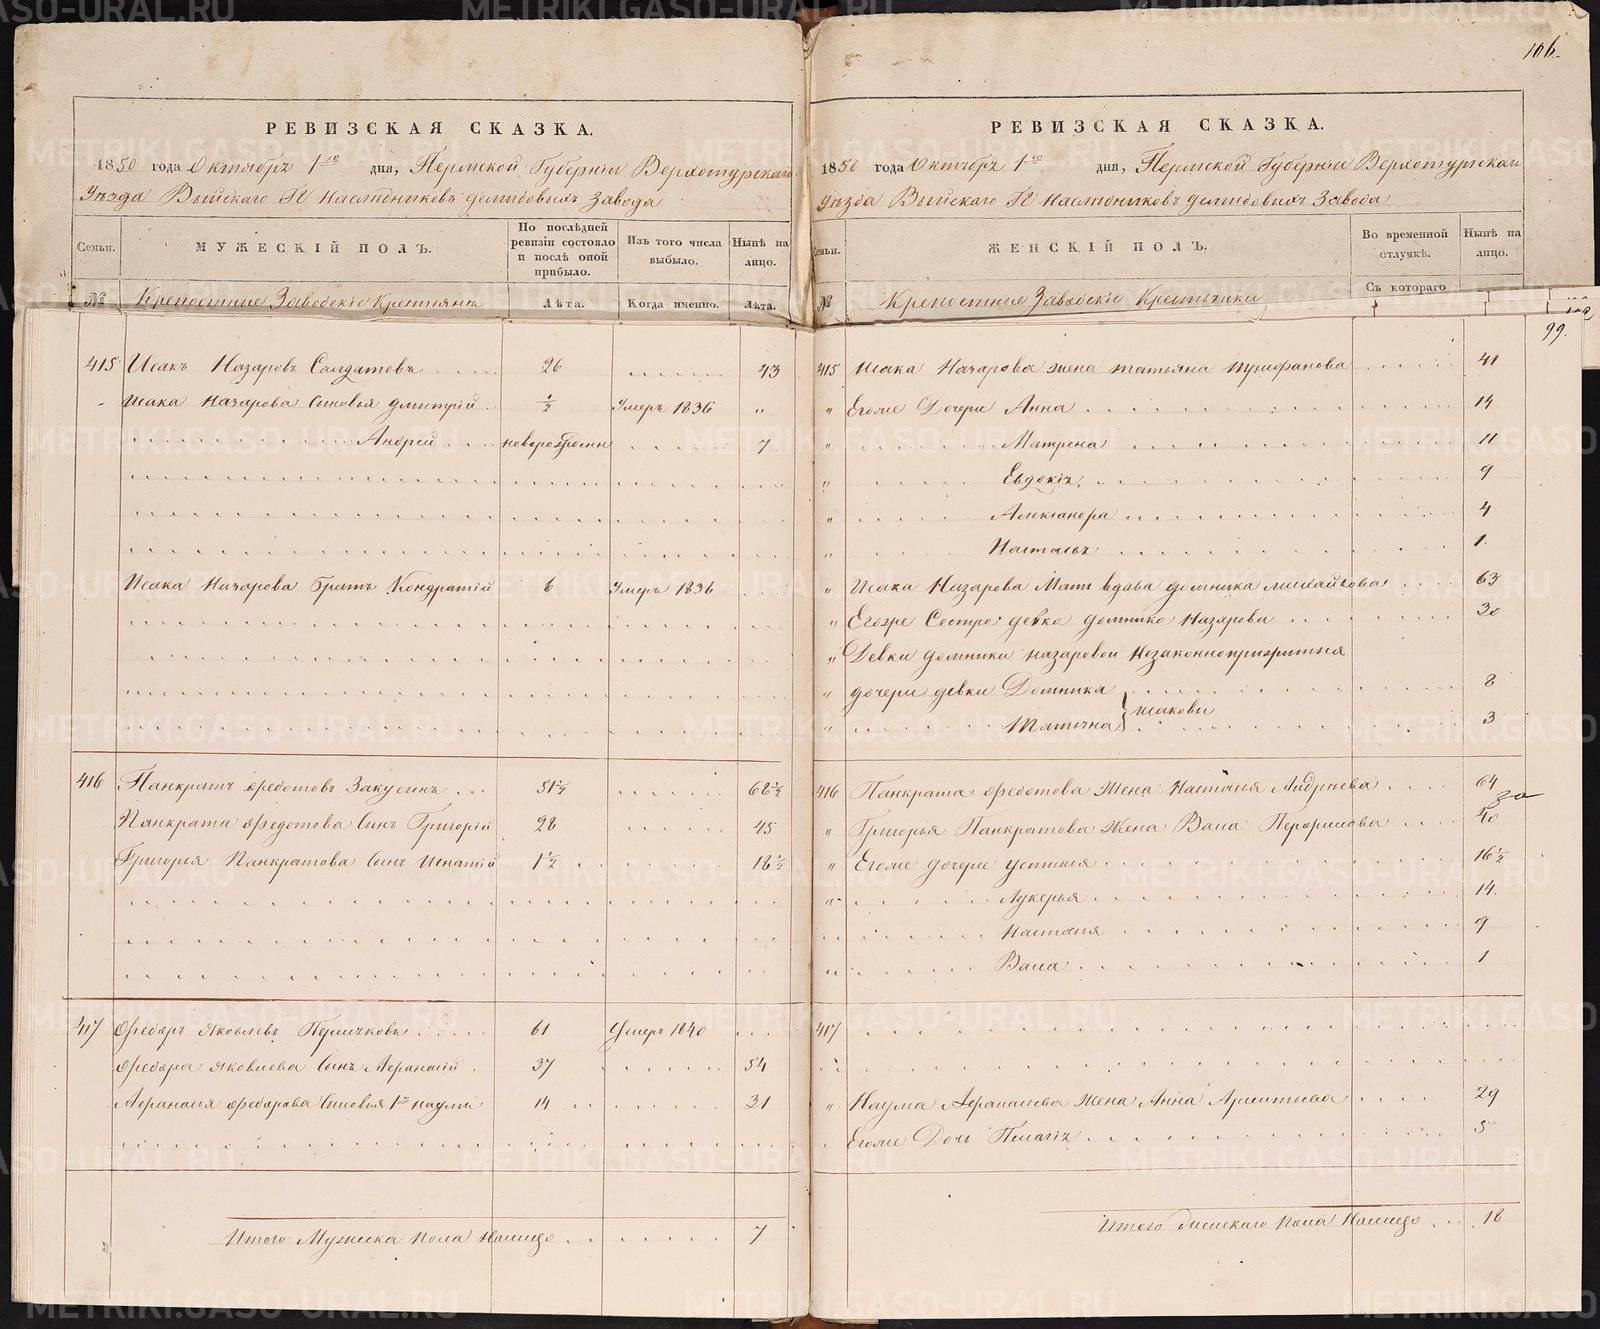 106.
РЕВИЗСКАЯ СКАЗКА.
1850 года Октября 1го дня, Пермской Губерніи Верхотурскаго
Уѣзда Выйскаго Гг Наслѣдниковъ Демидовыхъ Завода
Семьи. МУЖЕСКІЙ ПОЛЪ. По послѣдней ревизіи состояло и послѣ оной прибыло. Изъ того числа выбыло. Нынѣ на лицо.
№ Крепостные Заводскіе Крестьянъ Лѣта. Когда именно. Лѣта.
415 Исакъ Назаровъ Салдатовъ 26 43
Исака Назарова Сыновья Дмитрій ½ Умеръ 1836 "
Андрей новорожденн 7
Исака Назарова Братъ Кондратій 6 Умеръ 1836
416 Панкратъ Федотовъ Закусинъ 51½ 68½
Панкрата Федотова Сынъ Григорій 28 45
Григорья Панкратова Сынъ Игнатій 1½ 18½
417 Федоръ Яковлевъ 61 Умеръ 1840
Федора Яковлева Сынъ Афанасій 37 54
Афанасья Федорова Сыновья 1й Наумъ 14 31
Итого Мужеска пола Налицо 7
РЕВИЗСКАЯ СКАЗКА.
1850 года Октября 1го дня, Пермской Губерніи Верхотурскаго
Уѣзда Выйскаго Гг Наслѣдниковъ Демидовыхъ Завода
Семьи. ЖЕНСКІЙ ПОЛЪ. Во временной отлучкѣ. Нынѣ на лицо.
№ Крепостные Заводскіе Крестьянки Съ котораго
99.
415 Исака Назарова жена Татьяна 41
" Егоже Дочери Анна 14
" Матрена 11
" Евдокія 9
" Александра 4
" Настасья 1
" Исака Назарова Мать вдова Домника Михайлова 63
" Егоже Сестра девка Домника Назарова 30
" Девки Домники Назаровой Незаконноприжитыя
" дочери девки Домника 8
" Татьяна } Исаковы 3
416 Панкрата Федотова Жена Настасья Андреева 64
" Григорья Панкратова Жена Васса Перфилова 40
" Егоже дочери Устинья 16½
" Лукерья 14
Настасья 9
" Васса 1
417
" Наума Афанасьева Жена Анна Арсентьева 29
Егоже Дочь Пелагія 5
Итого Женскаго Пола Налицо 18
METRIKI.GASO-URAL.RU